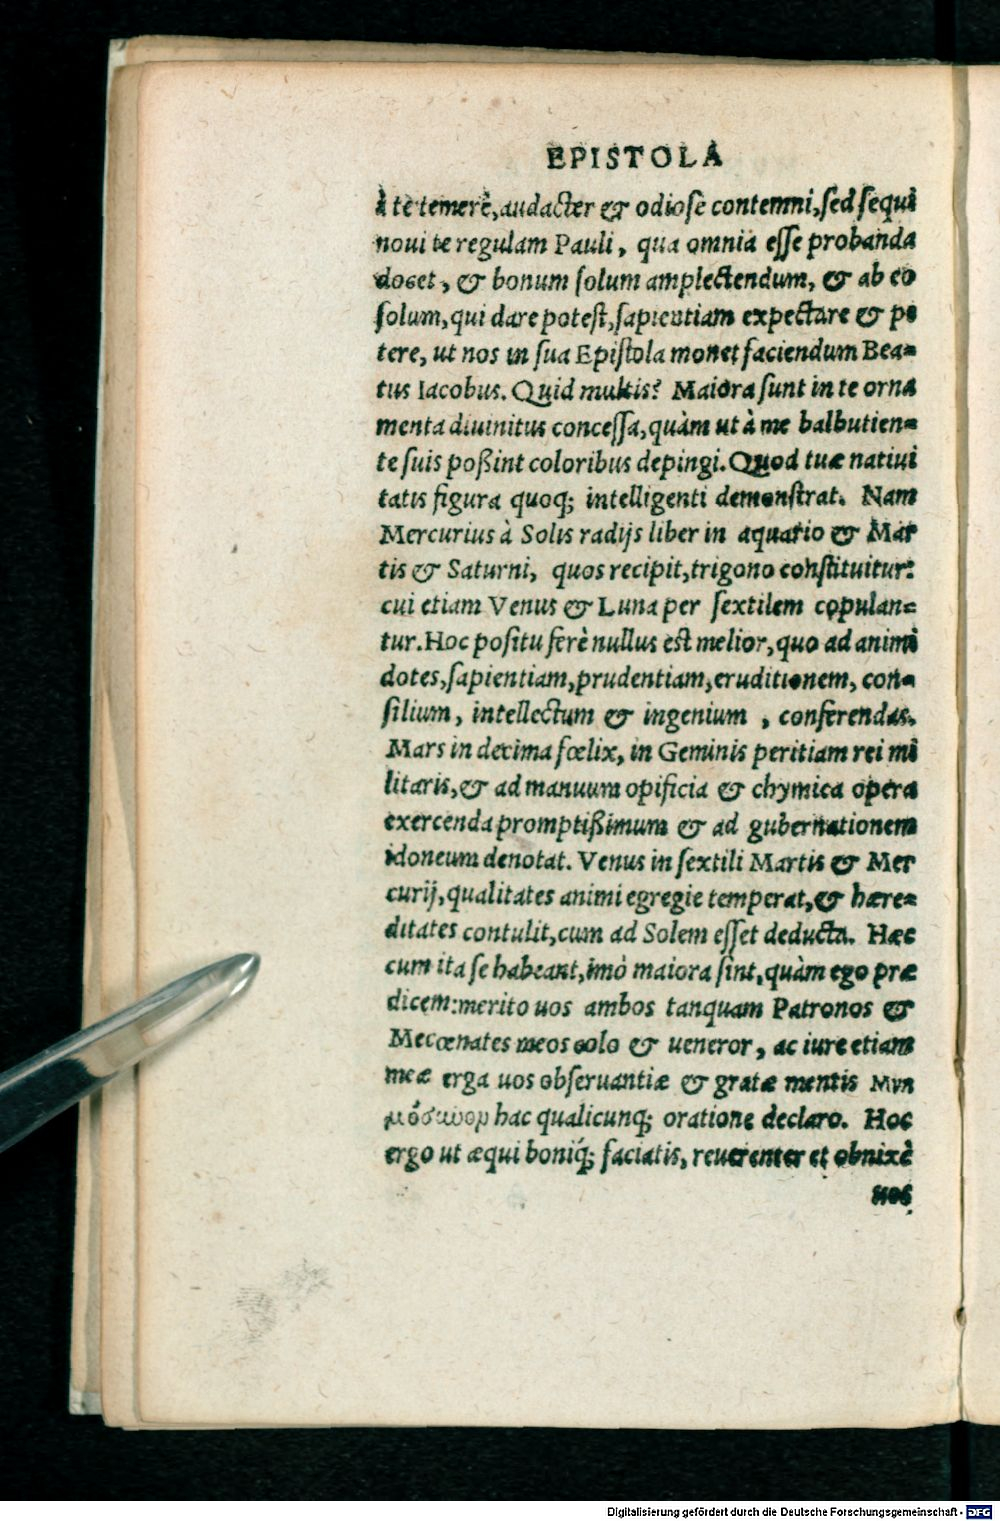 EPISTOLA
à te temerè, audacter & odiose contemni, sed sequi
noui te regulam Pauli, qua omnia esse probanda
docet, & bonum solum amplectendum, & ab eo
solum, qui dare potest, sapientiam expectare & pe
tere, ut nos in sua Epistola monet faciendum Bea=
tus Iacobus. Quid multis? Maiora sunt in te orna
menta diuinitus concessa, quàm ut à me balbutien=
te suis poßint coloribus depingi. Quod tuæ natiui
tatis figura quoq; intelligenti demonstrat. Nam
Mercurius à Solis radijs liber in aquario & Mar
tis & Saturni, quos recipit, trigono constituitur:
cui etiam Venus & Luna per sextilem copulan=
tur. Hoc positu ferè nullus est melior, quo ad animi
dotes, sapientiam, prudentiam, eruditionem, con=
silium, intellectum & ingenium, conferendas.
Mars in decima fœlix, in Geminis peritiam rei mi
litaris, & ad manuum opificia & chymica opera
exercenda promptißimum & ad gubernationem
idoneum denotat. Venus in sextili Martis & Mer
curij, qualitates animi egregie temperat, & hære=
ditates contulit, cum ad Solem esset deducta. Hæc
cum ita se habeant, imò maiora sint, quàm ego præ
dicem: merito uos ambos tanquam Patronos &
Mecœnates meos colo & ueneror, ac iure etiam
meæ erga uos obseruantiæ & gratæ mentis μνη
μόσυνον hac qualicunq; oratione declaro. Hoc
ergo ut æqui boniq́; faciatis, reuerenter et obnixè
uos
Digitalisierung gefördert durch die Deutsche Forschungsgemeinschaft - DFG